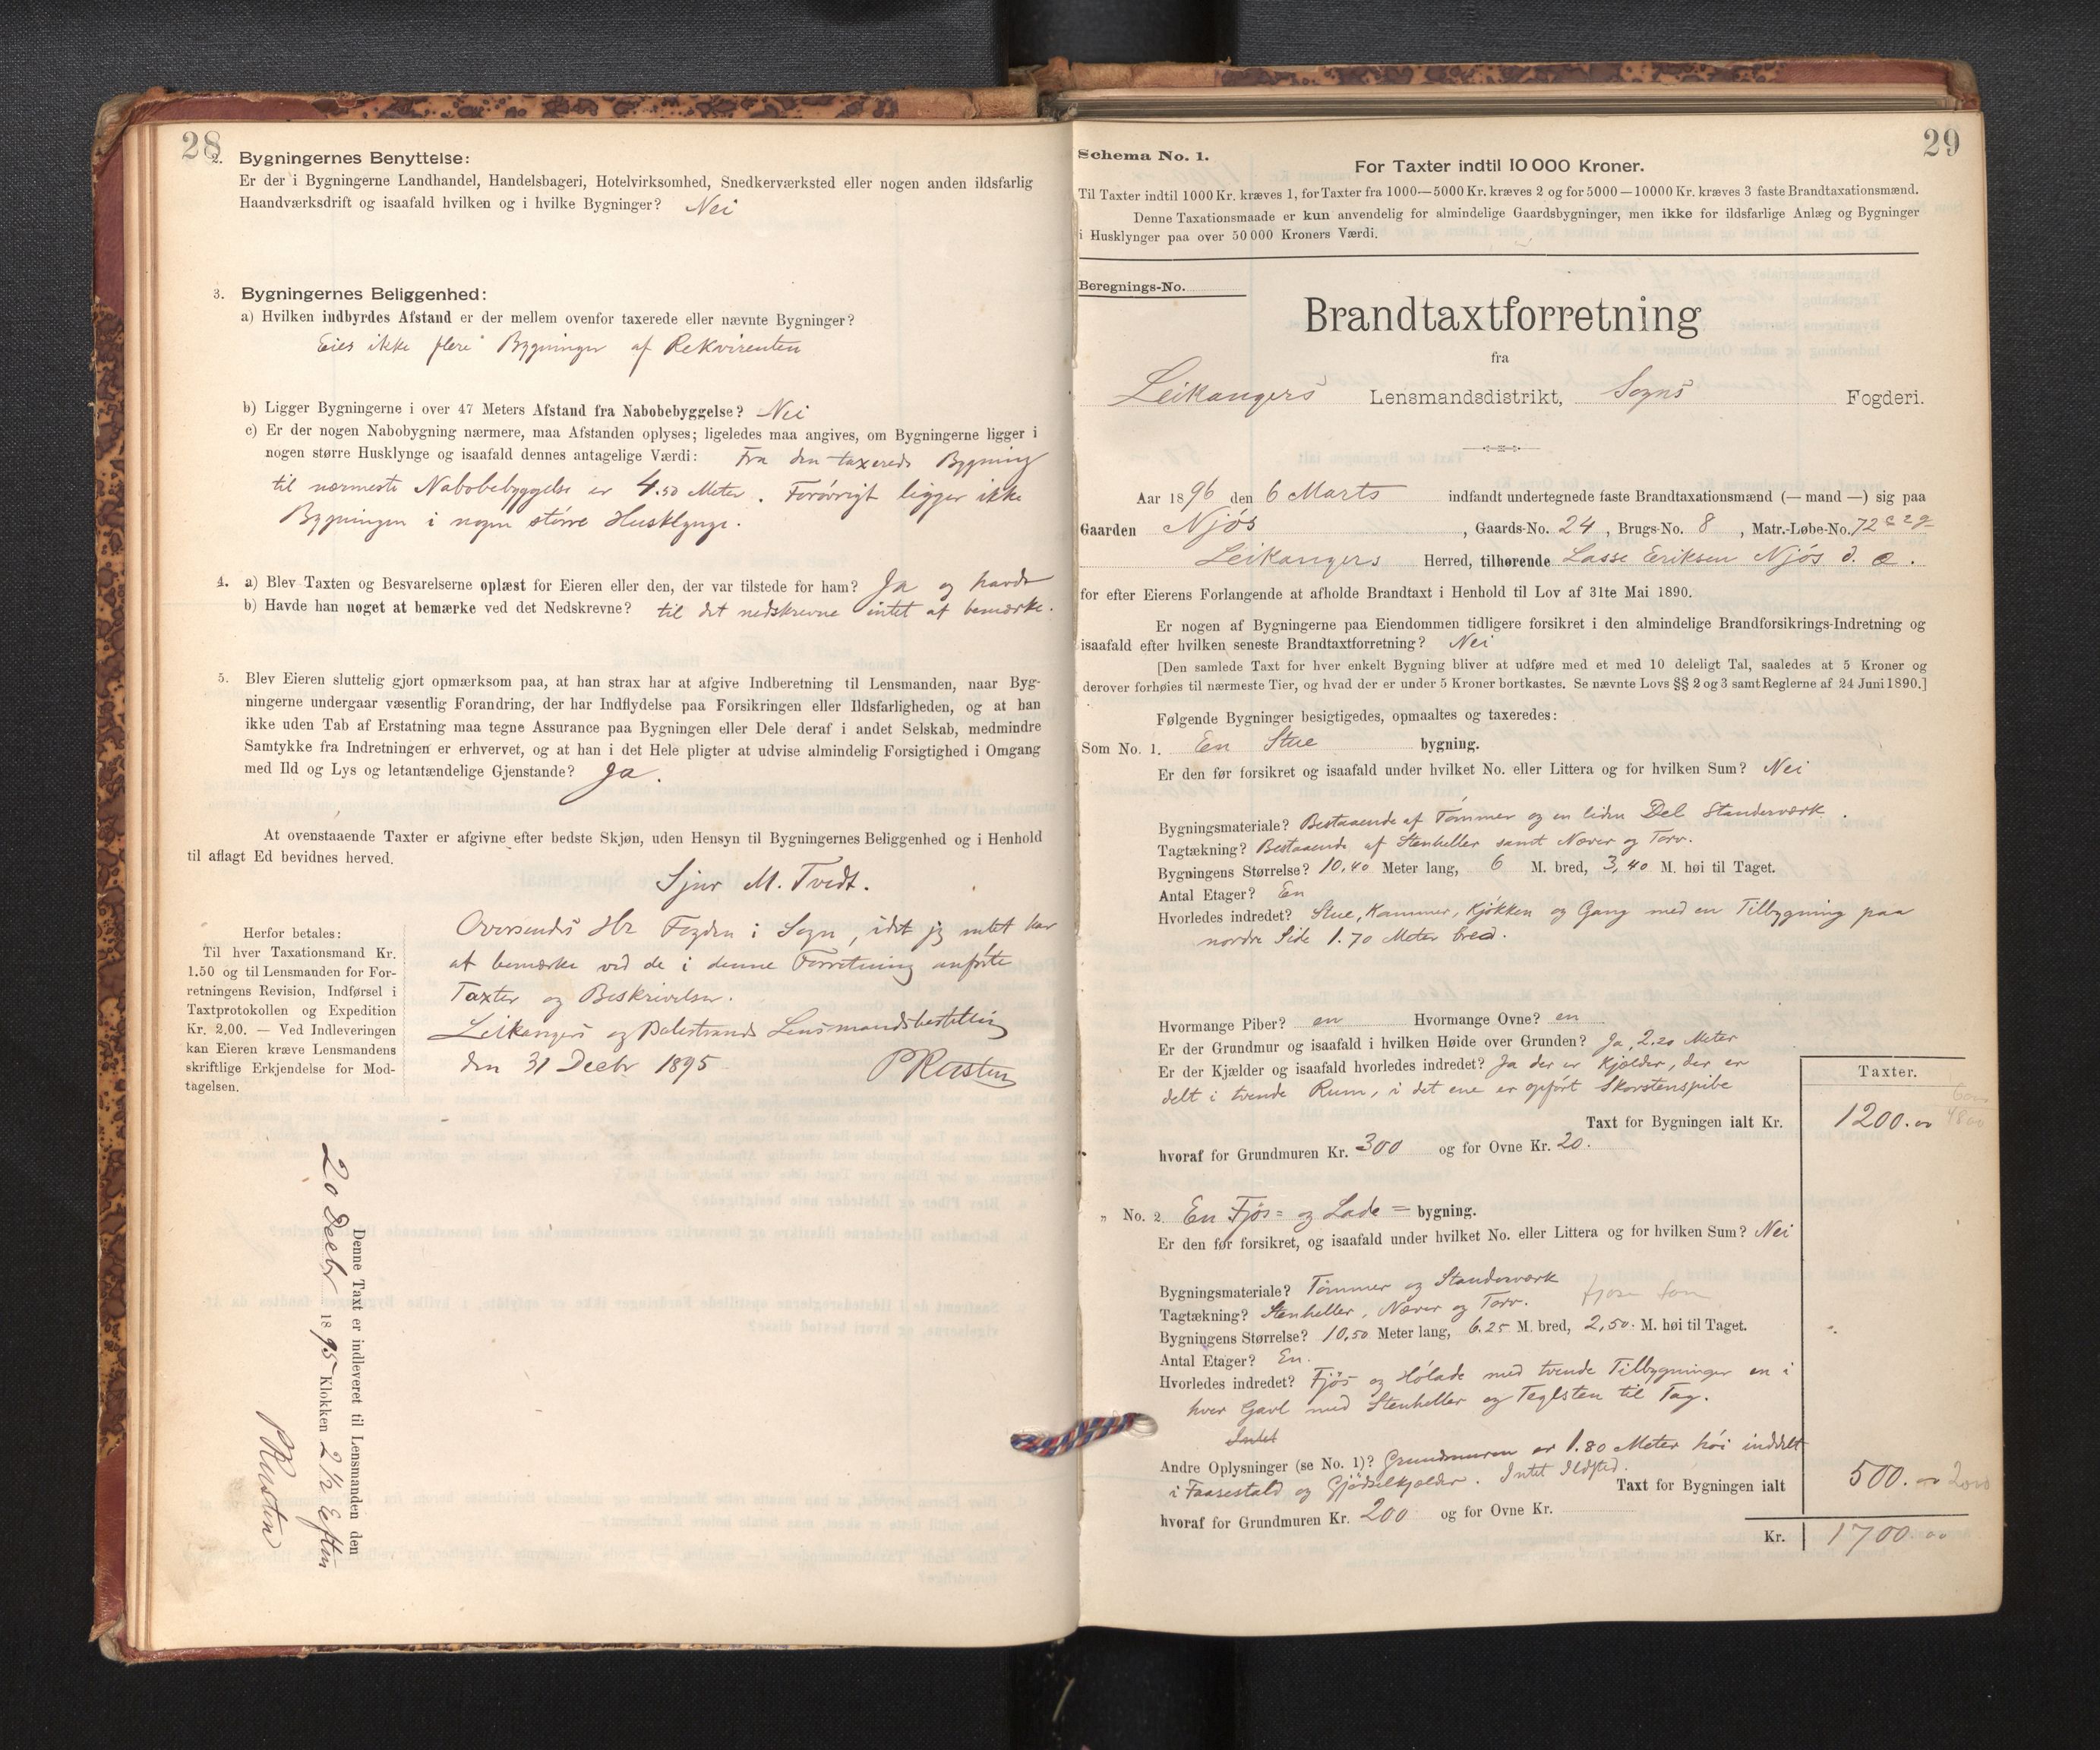 28
2. Bygningernes Benyttelse:
Er der i Bygningerne Landhandel, Handelsbageri, Hotelvirksomhed, Snedkerværksted eller nogen anden ildsfarlig
Haandværksdrift og isaafald hvilken og i hvilke Bygninger? Nei
3. Bygningernes Beliggenhed:
a) Hvilken indbyrdes Afstand er der mellem ovenfor taxerede eller nævnte Bygninger?
Eies ikke flere Bygninger af Rekvirenten
b) Ligger Bygningerne i over 47 Meters Afstand fra Nabobebyggelse? Nei
c) Er der nogen Nabobygning nærmere, maa Afstanden oplyses; ligeledes maa angives, om Bygningerne ligger i
nogen større Husklynge og isaafald dennes antagelige Værdi: Fra den taxerede Bygning
til nærmeste Nabobebyggelse er 4.50 Meter. Forøvrigt ligger ikke
Bygningen i nogen større Husklynge.
4. a) Blev Taxten og Besvarelserne oplæst for Eieren eller den, der var tilstede for ham? Ja og havde
b) Havde han noget at bemærke ved det Nedskrevne? til det nedskrevne intet at bemærke.
5. Blev Eieren sluttelig gjort opmærksom paa, at han strax har at afgive Indberetning til Lensmanden, naar Byg-
ningerne undergaar væsentlig Forandring, der har Indflydelse paa Forsikringen eller Ildsfarligheden, og at han
ikke uden Tab af Erstatning maa tegne Assurance paa Bygningen eller Dele deraf i andet Selskab, medmindre
Samtykke fra Indretningen er erhvervet, og at han i det Hele pligter at udvise almindelig Forsigtighed i Omgang
med Ild og Lys og letantændelige Gjenstande? Ja.
At ovenstaaende Taxter er afgivne efter bedste Skjøn, uden Hensyn til Bygningernes Beliggenhed og i Henhold
til aflagt Ed bevidnes herved.
Sjur M. Tvedt.
Herfor betales:
Til hver Taxationsmand Kr.
1.50 og til Lensmanden for For-
retningens Revision, Indførsel i
Taxtprotokollen og Expedition
Kr. 2,00. — Ved Indleveringen
kan Eieren kræve Lensmandens
skriftlige Erkjendelse for Mod-
tagelsen.
Oversendes Hr Fogden i Sogn, idet jeg intet har
at bemærke ved de i denne Forretning anførte
Taxter og Beskrivelser.
Leikangers og Balestrands Lensmandsbestilling
den 31 Decbr 1895
P Rusten
Denne Taxt er indleveret til Lensmanden den
20 Decbr 1895 Klokken 2 1/2 Eftm
P Rusten
29
Schema No. 1.
For Taxter indtil 10 000 Kroner.
Til Taxter indtil 1000 Kr. kræves 1, for Taxter fra 1000—5000 Kr. kræves 2 og for 5000—10000 Kr. kræves 3 faste Brandtaxationsmænd.
Denne Taxationsmaade er kun anvendelig for almindelige Gaardsbygninger, men ikke for ildsfarlige Anlæg og Bygninger
i Husklynger paa over 50 000 Kroners Værdi.
Beregnings-No.
Brandtaxtforretning
fra
Leikangers Lensmandsdistrikt, Sogns Fogderi.
Aar 1896 den 6 Marts indfandt undertegnede faste Brandtaxationsmænd (— mand —) sig paa
Gaarden Njøs, Gaards-No. 24, Brugs-No. 8, Matr.-Løbe-No. 72
Leikangers Herred, tilhørende Lasse Eriksen Njøs d. æ.
for efter Eierens Forlangende at afholde Brandtaxt i Henhold til Lov af 31te Mai 1890.
Er nogen af Bygningerne paa Eiendommen tidligere forsikret i den almindelige Brandforsikrings-Indretning og
isaafald efter hvilken seneste Brandtaxtforretning? Nei
[Den samlede Taxt for hver enkelt Bygning bliver at udføre med et med 10 deleligt Tal, saaledes at 5 Kroner og
derover forhøies til nærmeste Tier, og hvad der er under 5 Kroner bortkastes. Se nævnte Lovs §§ 2 og 3 samt Reglerne af 24 Juni 1890.]
Følgende Bygninger besigtigedes, opmaaltes og taxeredes:
Som No. 1. En Stue bygning.
Er den før forsikret og isaafald under hvilket No. eller Littera og for hvilken Sum? Nei
Bygningsmateriale? Bestaaende af Tømmer og en liden Del Standerværk.
Tagtækning? Bestaaende af Stenheller samt Næver og Torv.
Bygningens Størrelse? 10,40 Meter lang, 6 M. bred, 3,40 M. høi til Taget.
Antal Etager? En
Hvorledes indredet? Stue, Kammer, Kjøkken og Gang med en Tilbygning paa
nordre Side 1.70 Meter bred.
Hvormange Piber? en Hvormange Ovne? en
Er der Grundmur og isaafald i hvilken Høide over Grunden? Ja, 2.20 Meter
Er der Kjælder og isaafald hvorledes indredet? Ja der er Kjælder, der er
delt i tvende Rum, i det ene er opført Skorstenspibe
Taxter.
Taxt for Bygningen ialt Kr. 1200.00
hvoraf for Grundmuren Kr. 300 og for Ovne Kr. 20.
„ No. 2. En Fjøs= og Lade= bygning.
Er den før forsikret, og isaafald under hvilket No. eller Littera og for hvilken Sum? Nei
Bygningsmateriale? Tømmer og Standerværk
Tagtækning? Stenheller, Næver og Torv.
Bygningens Størrelse? 10,50 Meter lang, 6.25 M. bred, 2,50. M. høi til Taget.
Antal Etager? En.
Hvorledes indredet? Fjøs og Hølade med tvende Tilbygninger en i
hver Gavl med Stenheller og Teglsten til Tag.
Intet
Andre Oplysninger (se No. 1)? Grundmuren er 1.80 Meter høi inddelt
i Faarestald og Gjødselkjælder. Intet Ildsted.
Taxt for Bygningen ialt 500.00 2000
hvoraf for Grundmuren Kr. 200 og for Ovne Kr.
Kr. 1700.00